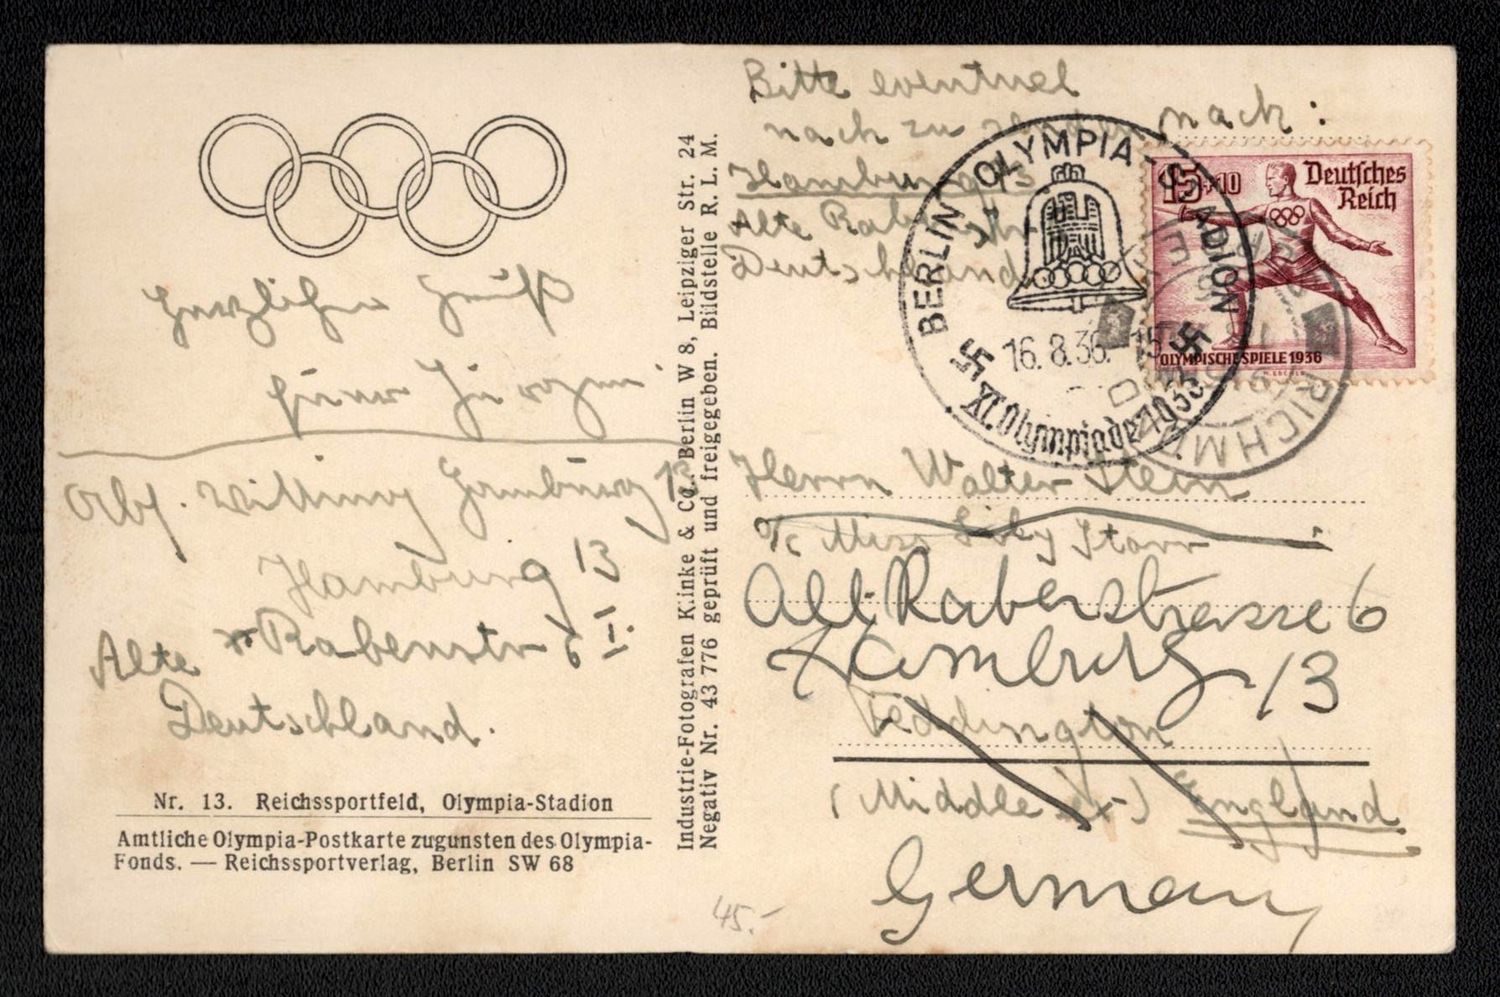 Herzlichen Gruß
Jürgen
Abs. Witting Hamburg 13
Hamburg 13
Alte Rabenstr 6 I.
Deutschland.
Nr. 13. Reichssportfeld, Olympia-Stadion
Amtliche Olympia-Postkarte zugunsten des Olympia-
Fonds. — Reichssportverlag, Berlin SW 68
Industrie-Fotografen Klinke & Co., Berlin W 8, Leipziger Str. 24
Negativ Nr. 43 776 geprüft und freigegeben. Bildstelle R. L. M.
Bitte eventuel
nach zu senden nach:
Hamburg 13
Alte Rabenstr
Deutschland
BERLIN OLYMPIA-STADION
16.8.36.
XI. Olympiade 1936
15+10
Deutsches
Reich
OLYMPISCHE SPIELE 1936
RICHM
Herrn Walter Stein
c/o Miss Starr
Alte Rabenstrasse 6
Hamburg 13
Teddington
(Middlesex) England
Germany
45.-